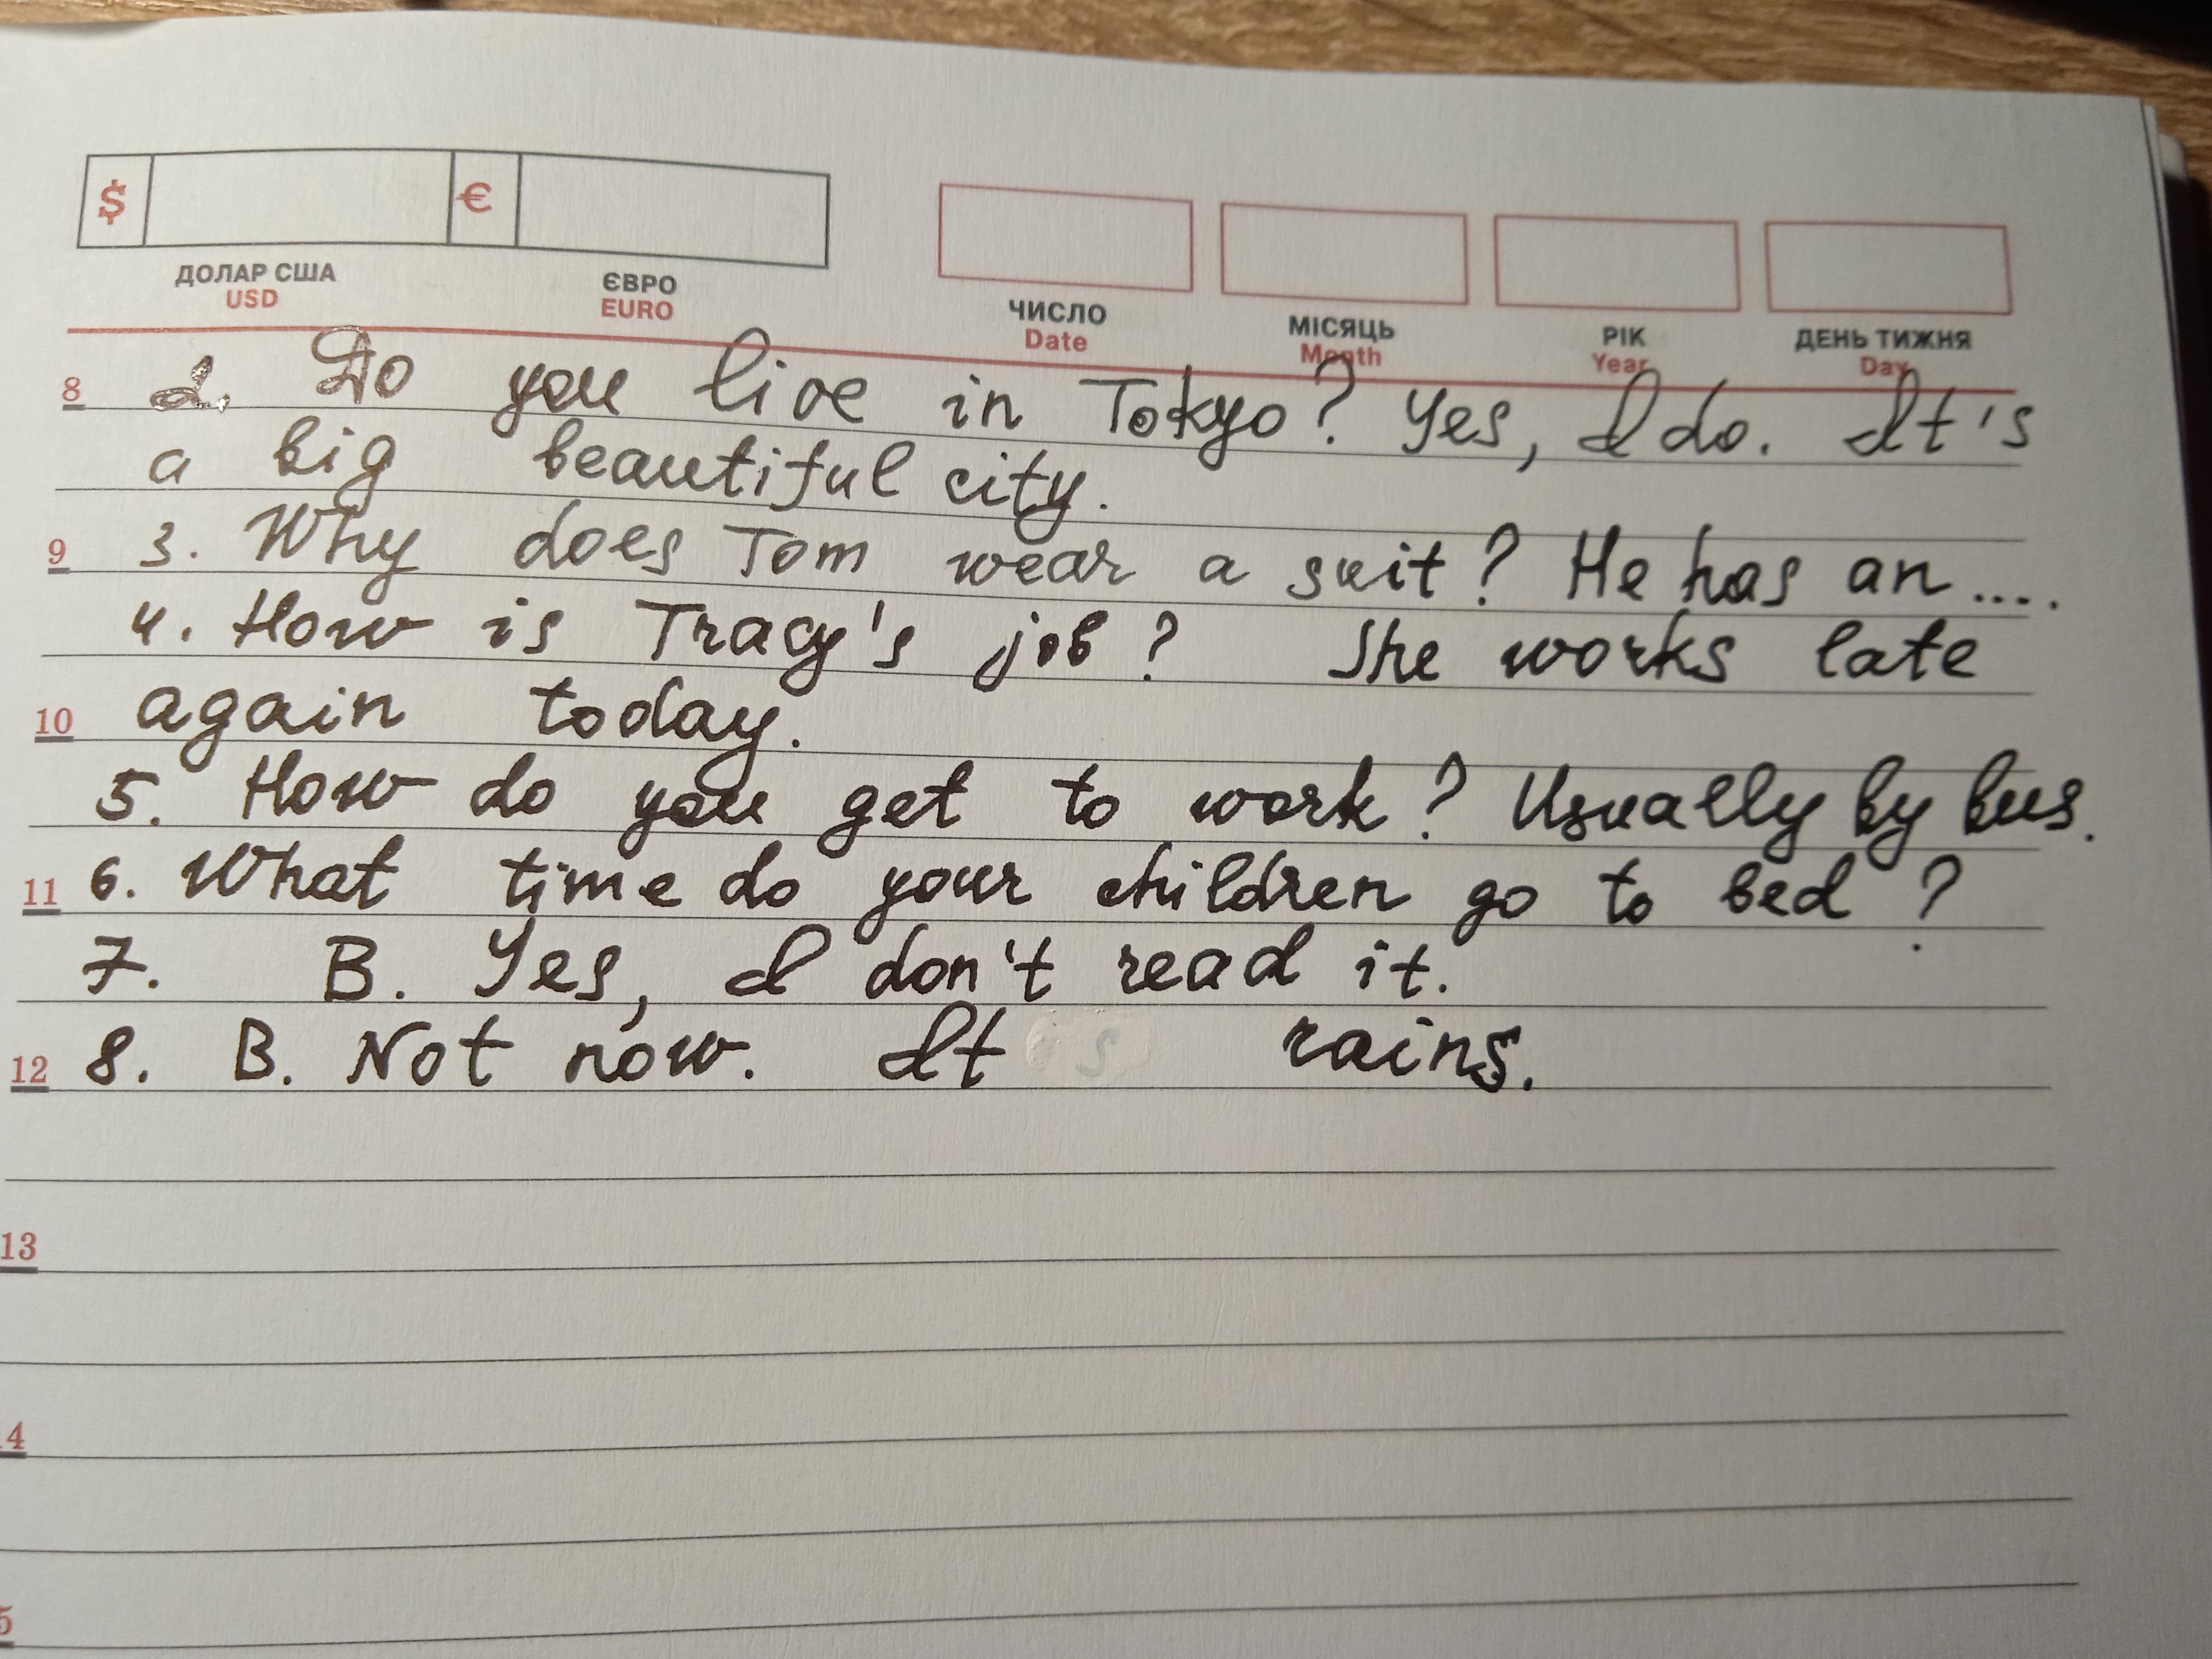 $ €
ДОЛАР США ЄВРО ЧИСЛО МІСЯЦЬ РІК ДЕНЬ ТИЖНЯ
USD EURO Date Month Year Day
8 2. Do you live in Tokyo? Yes, I do. It's
a big beautiful city.
9 3. Why does Tom wear a suit? He has an....
4. How is Tracy's job? She works late
10 again today.
5. How do you get to work? Usually by bus.
11 6. What time do your children go to bed?
7. B. Yes, I don't read it.
12 8. B. Not now. It s rains.
13
4
5